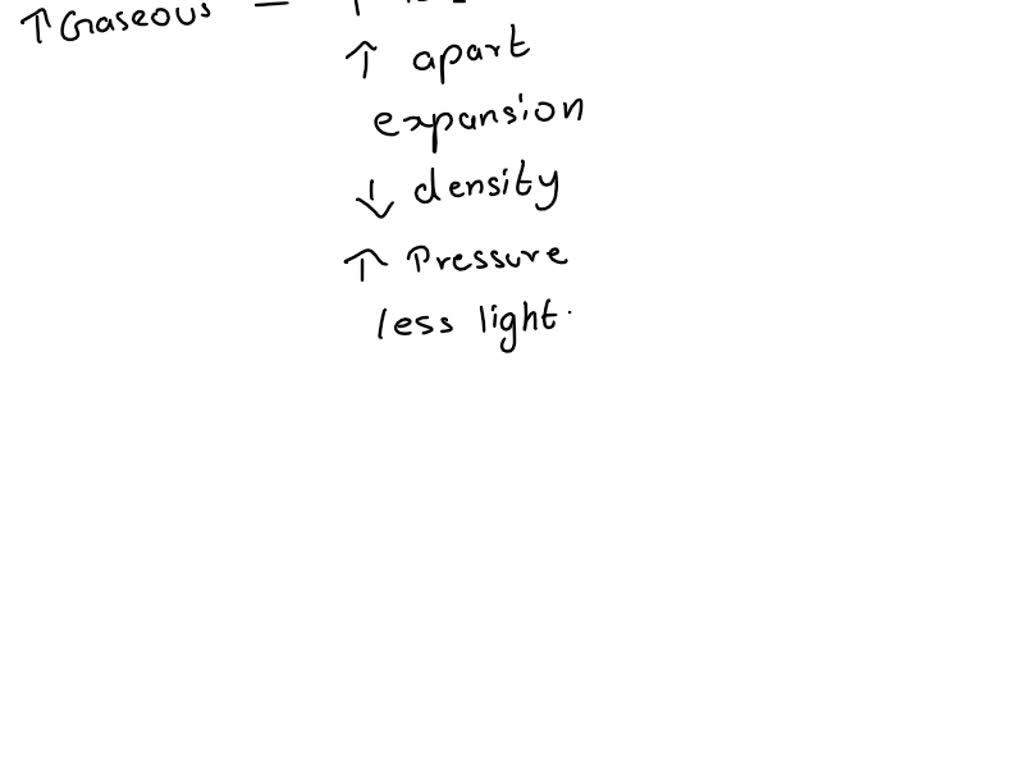 ↑ Gaseous – ↑
↑ apart
expansion
↓ density
↑ Pressure
less light.